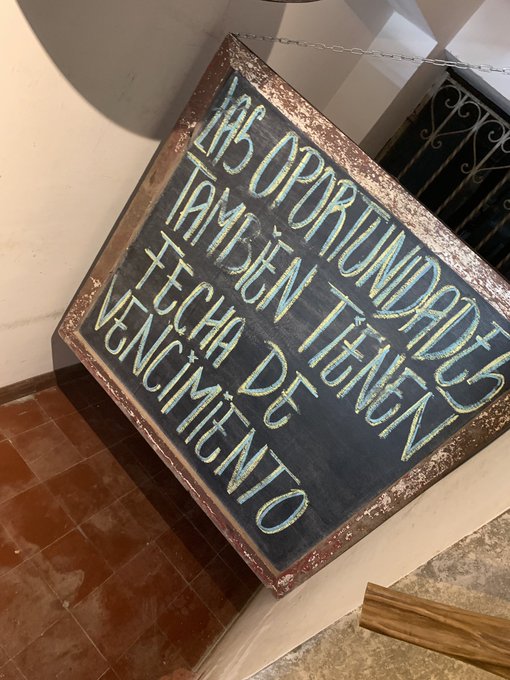 LAS OPORTUNIDADES
TAMBIÉN TIENEN
FECHA DE
VENCIMIENTO